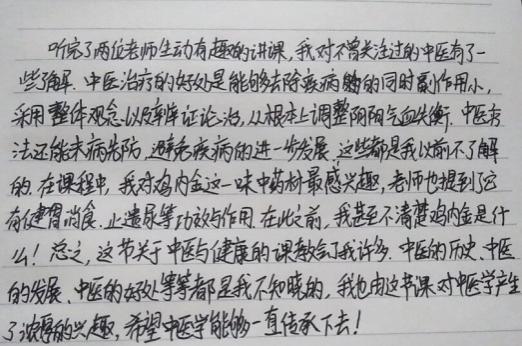 听完了两位老师生动有趣的讲课,我对不曾关注过的中医有了一
些了解.中医治疗的好处是能够去除疾病的同时副作用小,
采用整体观念以及辩证论治,从根本上调整阴阳气血失衡.中医方
法还能未病先防,避免疾病的进一步发展.这些都是我以前不了解
的.在课程中,我对鸡内金这一味中药材最感兴趣,老师也提到了它
有健胃消食、止遗尿等功效与作用.在此之前,我甚至不清楚鸡内金是什
么!总之,这节关于中医与健康的课教会了我许多.中医的历史、中医
的发展、中医的好处等等都是我不知晓的,我也由这节课对中医学产生
了浓厚的兴趣,希望中医学能够一直传承下去!